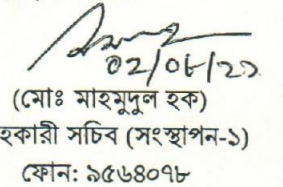 (মোঃ মাহমুদুল হক)
হকারী সচিব (সংস্থাপন-১)
ফোন: ৯৫৬৪০৭৮